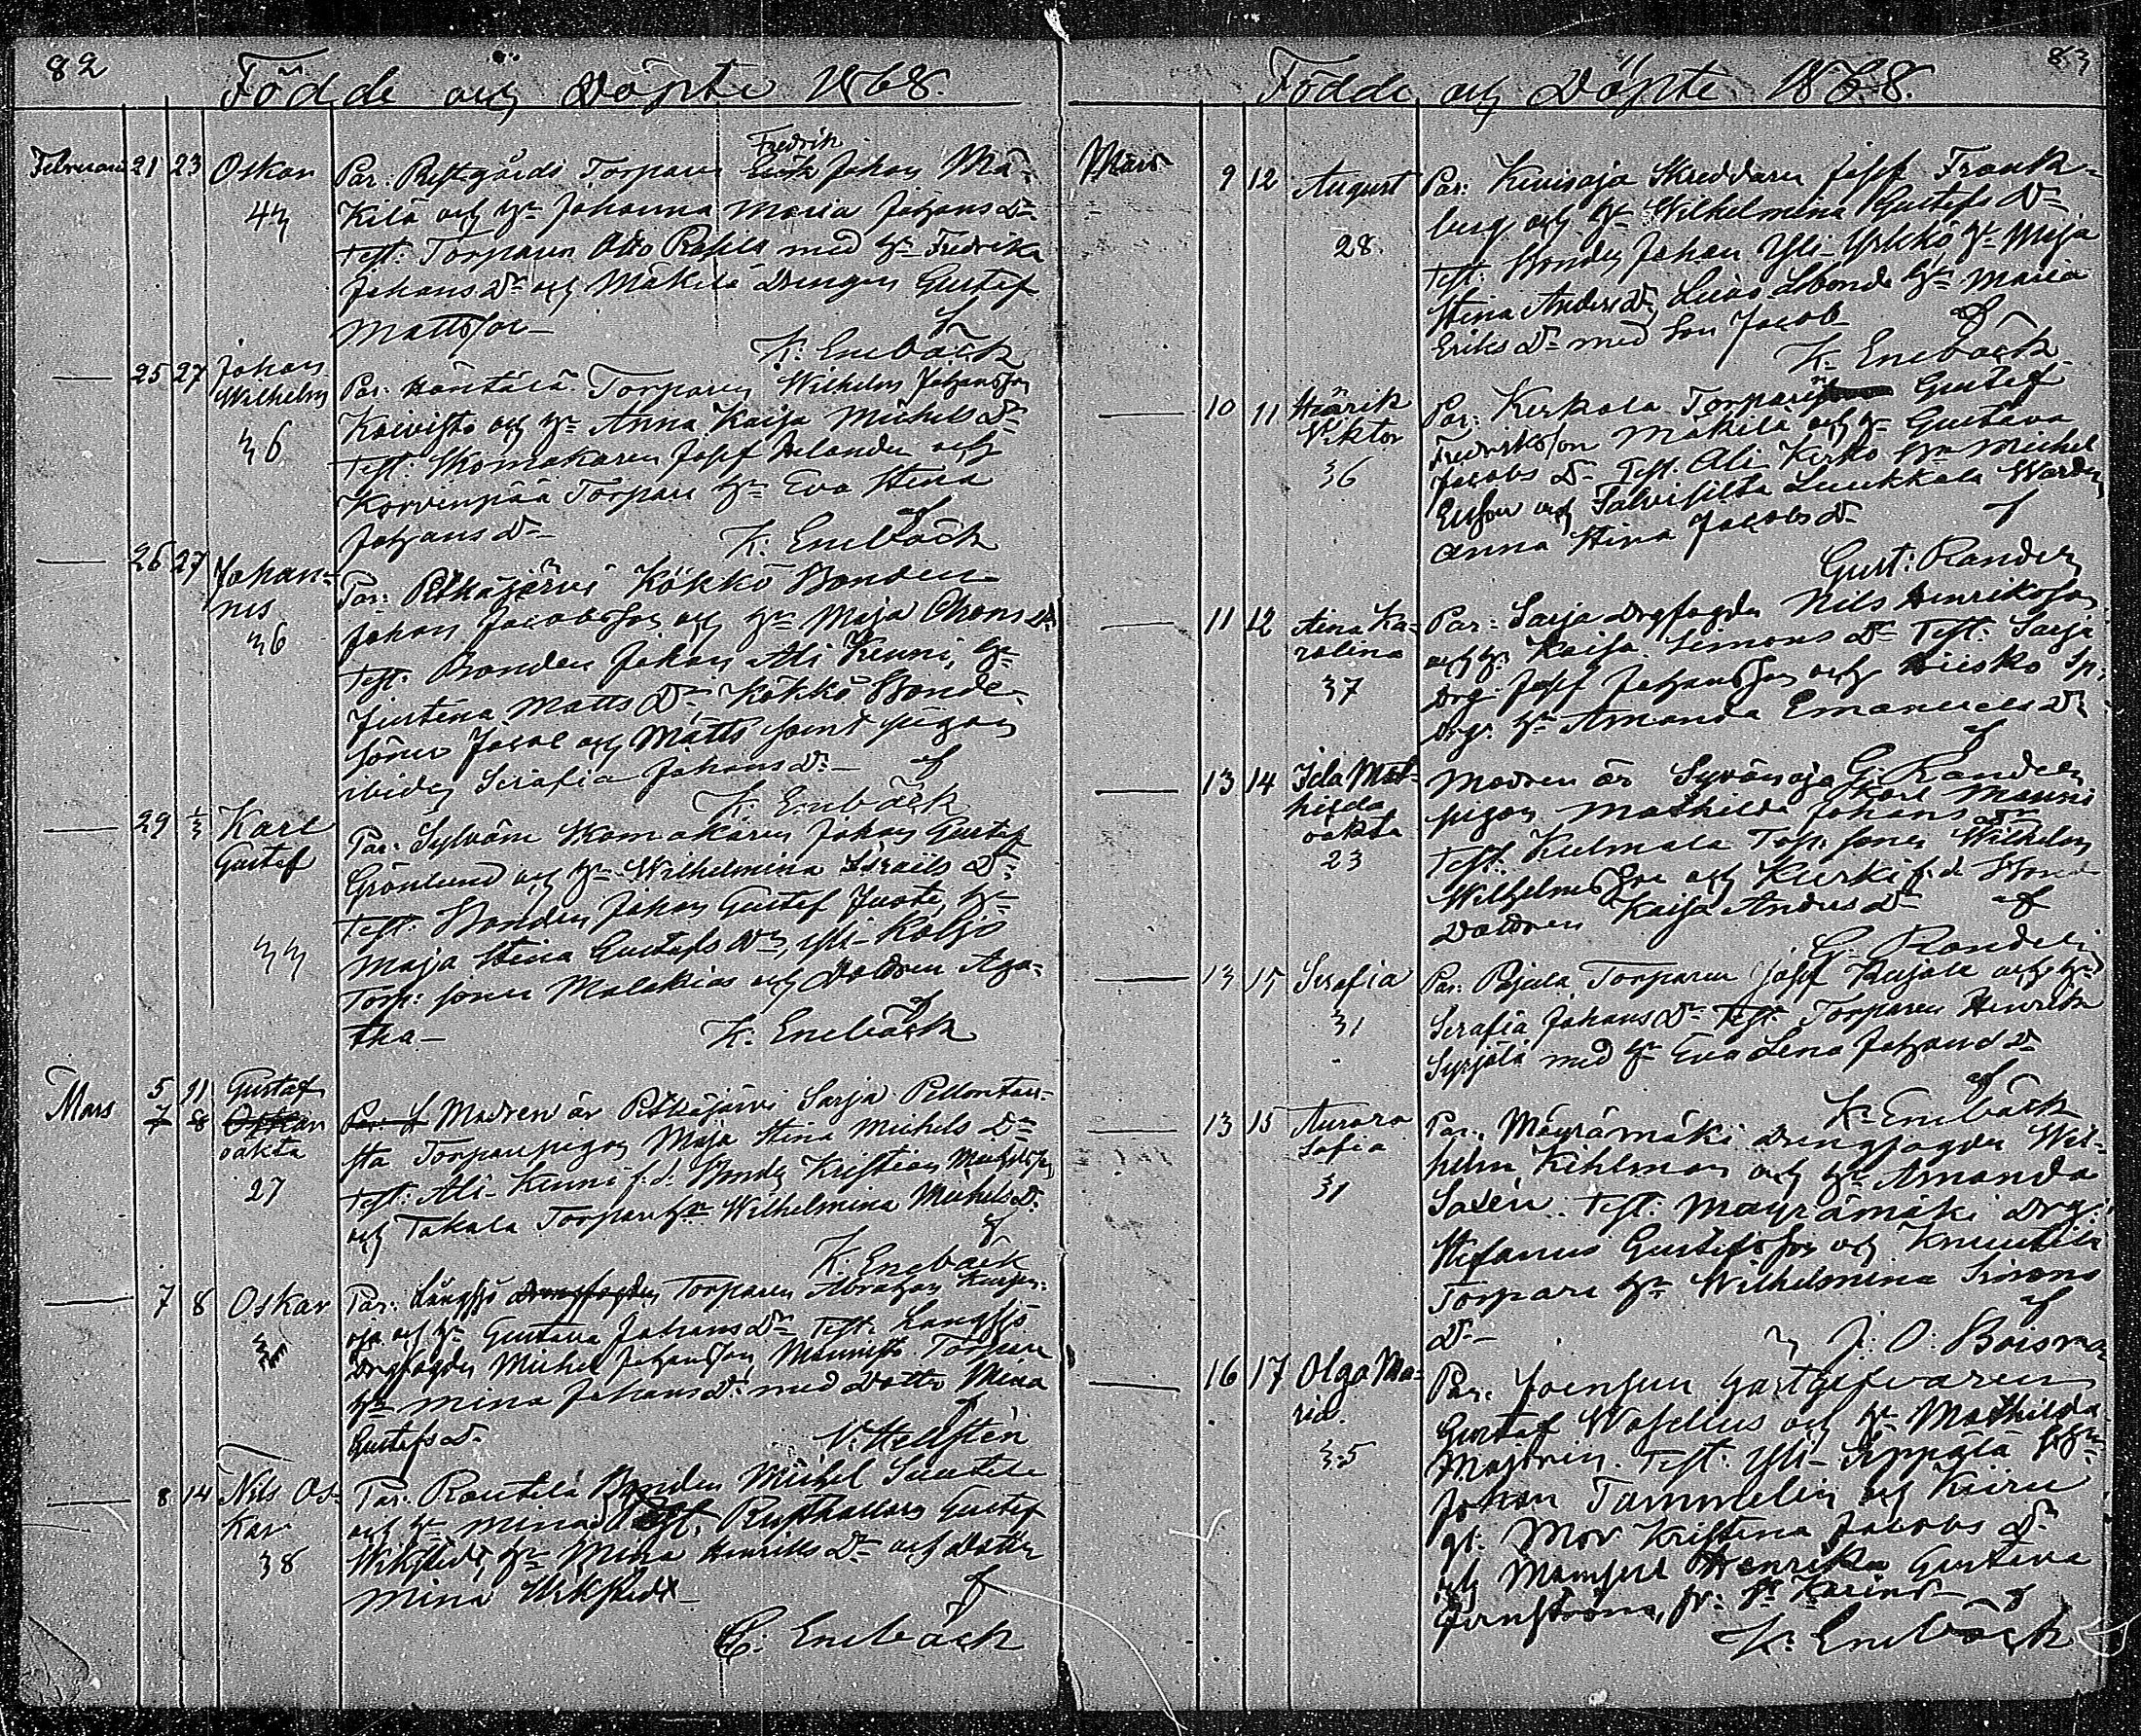 82
Födde och Döpte 1868.
Februari 21 23 Oskar
43
Fredrik
Par: Torparen Johan Mä-
kilä och h:u Johanna Maria Johans D:r
Test: Torparen Otto med h:u Fredrika
Johans D:r och Mäkilä Drengen Gustaf
Mattsson
af
K. Enebäck
25 27 Johan
Wilhelm
36
Par: Torparen Wilhelm Johansson
Koivisto och h:u Anna Kaisa Michels D:r
Test: Skomakaren Josef Helander och
Korvenpää Torpare h:u Eva Stina
Johans D:r
af
K. Enebäck
26 27 Johan-
nes
36
Par: Pitkäjärvi Kökkö Bonden
Johan Jacobsson och h:u Maja Thoms D:r
Test: Bonden Johan Ali Kenni, h:u
Justina Matts D:r Kökkö Bonde-
söner Jacob och Matts samt pigan
ibiden Serafia Johans D:r af
K. Enebäck
29 1/3 Karl
Gustaf
33
Par: Sylvän Skomakaren Johan Gustaf
Grönlund och h:u Wilhelmina Israels D:r
Test: Bonden Johan Gustaf Juote, h:u
Maja Stina Gustafs D:r, Yli-Koljo
Torp: sonen Malakias och Dottren Aga-
tha
af
K. Enebäck
Mars 5 11 Gustaf
7 8 Oskar
oäkta
27
Par: Modren är Pitkäjärvi Sarja Pellontau-
sta Torparepigan Maja Stina Michels D:r
Test: Ali-Kenni f.d. Bonden Kristian Michelsson
och Takala Torpare h:u Wilhelmina Michels D:r
af
K. Enebäck
7 8 Oskar
Par: Långsjö Drengfogden Torparen Abraham
oja och h:u Gustava Johans D:r Test: Långsjö
Drgfogden Michel Johansson, Mannisto Torpare
h:u Mina Johans D:r med Dotter Mina
Gustafs D:r
af
V. Hellstén
8 14 Nils Os-
kar
38
Par: Rautila Bonden Michel
och h:u Mina Test. Rusthållaren Gustaf
Wikstedt, h:u Mina Henriks D:r och Dotter
Mina Wikstedt
af
C. Enebäck
83
Födde och Döpte 1868.
Mars 9 12 August
28.
Par: Kuusoja Skreddaren Josef Frank-
berg och h:u Wilhelmina Gustafs D:r
Test: Bonden Johan Yli-Yrkkö h:u Maja
Stina Anders D:r, Bonde h:u Maria
Eriks D:r med Son Jacob
af
K. Enebäck
10 11 Henrik
Viktor
36
Par: Kerkola Torparen Gustaf
Fredriksson Mäkilä och h:u Gustava
Jacobs D:r Test. Ali Kerko Michel
Ersson och Talvisilta Luukkala
Anna Stina Jacobs D:r
af
Gust: Randen
11 12 Aina Ka-
rolina
37
Par: Sarja Drgfogden Nils Henriksson
och h:u Kaisa Simons D:r Test: Sarja
Drg: Josef Johansson och Kiisko Sp:
Drgr h:u Amanda Emanuels D:r
af
G: Randelin
13 14 Ida Mat-
hilda
oäkta
23
Modren är Syvänoja
pigan Mathilda Johans D:r
Test. Kulmala Torp. sonen Wilhelm
Wilhelmsson och Kurki f.d. Bonde
Dottren Kaisa Anders D:r af
G. Randelin
13 15 Serafia
31
Par: Pajula Torparen Josef Kujala och h:u
Serafia Johans D:r Test: Torparen Henrik
Syrjälä med h:u Eva Lena Johans D:r
af
K. Enebäck
13 15 Aurora
Sofia
31
Par. Mäyrämäki Drengfogden Wil-
helm Kihlman och h:u Amanda
Saxén. Test: Mäyrämäki Drg:
Stefanus Gustafsson och Knuutila
Torpare h:u Wilhelmina Simons
D:r
af
J: O: Boisman
16 17 Olga Ma-
ria.
35
Par. Joensuu Gästgifvaren
Gustaf Wasellius och h:u Mathilda
Majorin. Test. Yli-Seppälä
Johan Tammelin och Kiiru
gl. Mor Kristina Jacobs D:r
och Mamsell Henrika Gustava
Jernström, fr: S:t Karins
af
K. Enebäck